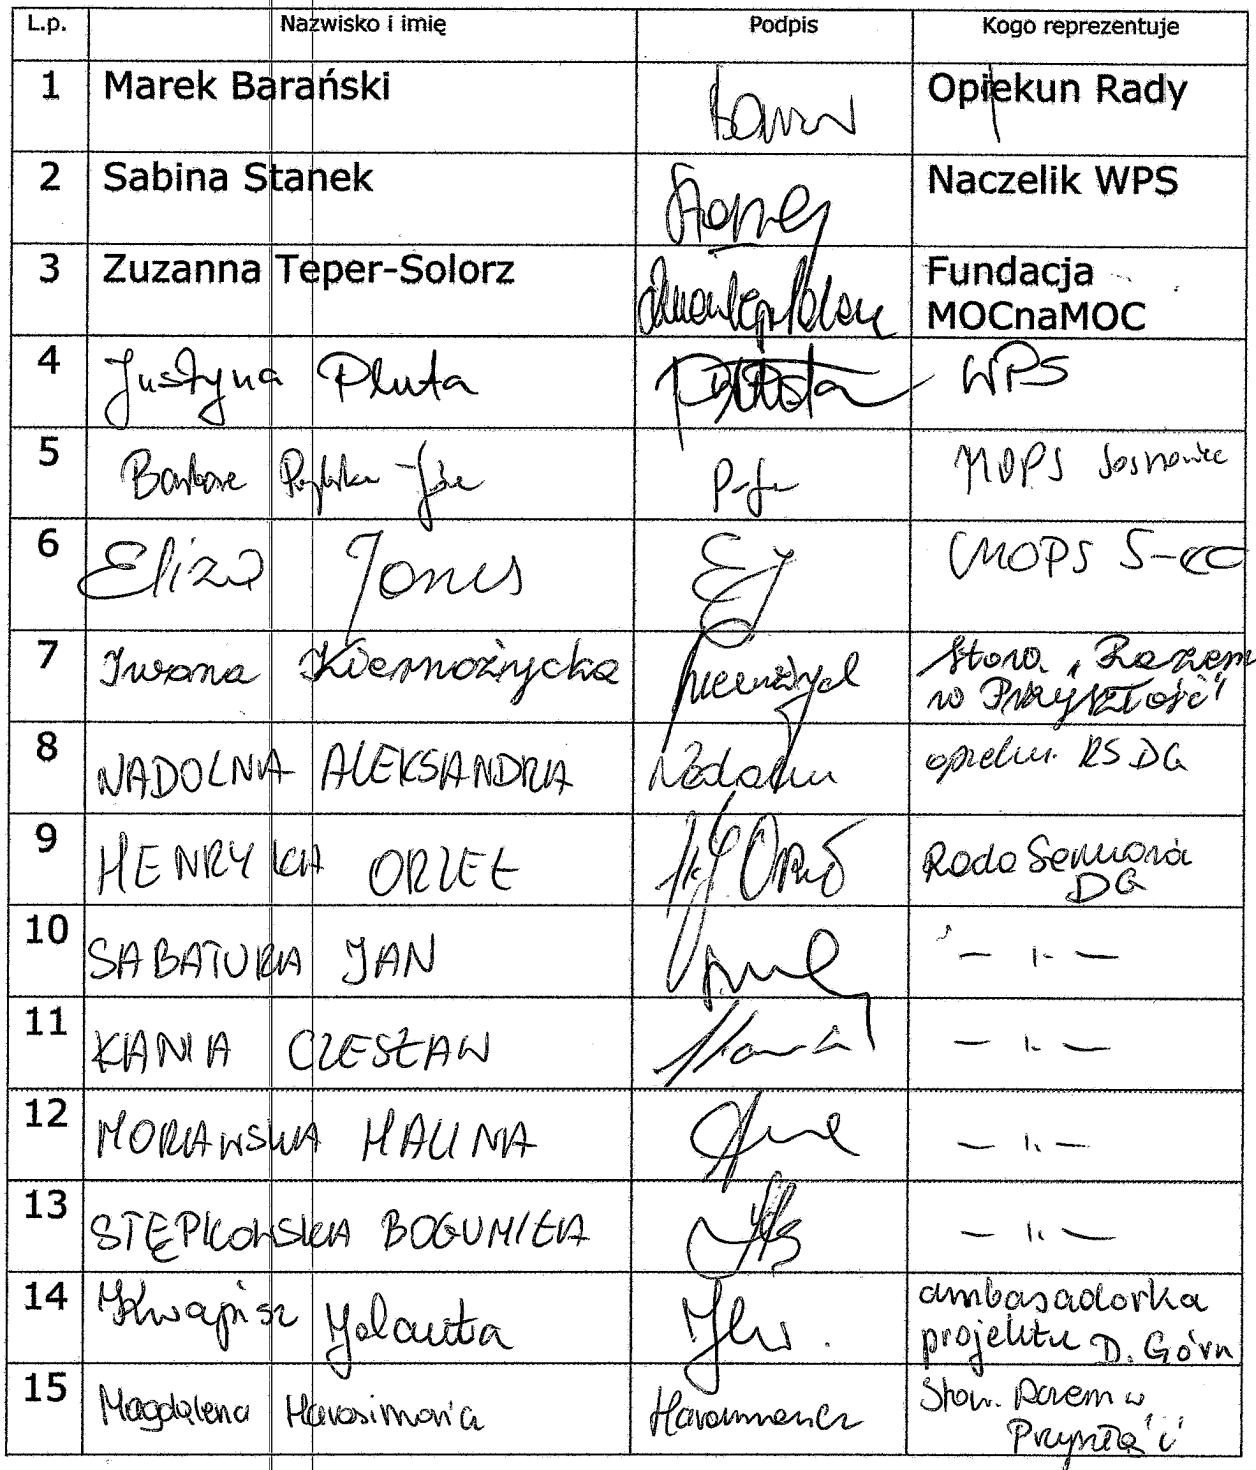 L.p. Nazwisko i imię Podpis Kogo reprezentuje
1 Marek Barański Opiekun Rady
2 Sabina Stanek Naczelik WPS
3 Zuzanna Teper-Solorz Fundacja
MOCnaMOC
4 Justyna Pluta WPS
5 Barbara MOPS Sosnowiec
6 Eliza Jones MOPS S-ec
7 Iwona Kiernożycka Stow. „Razem
w Przyszłość"
8 NADOLNA ALEKSANDRA RS DG
9 HENRYKA ORZEŁ Rada Seniora
DG
10 SABATURA JAN — 1. —
11 KANIA CZESŁAW — 1. —
12 MORAWSKA HALINA — 1. —
13 STĘPKOWSKA BOGUMIŁA — 1. —
14 Kwapisz Jolanta ambasadorka
projektu D. Górn
15 Magdalena Stow. Razem w
Przyszłość